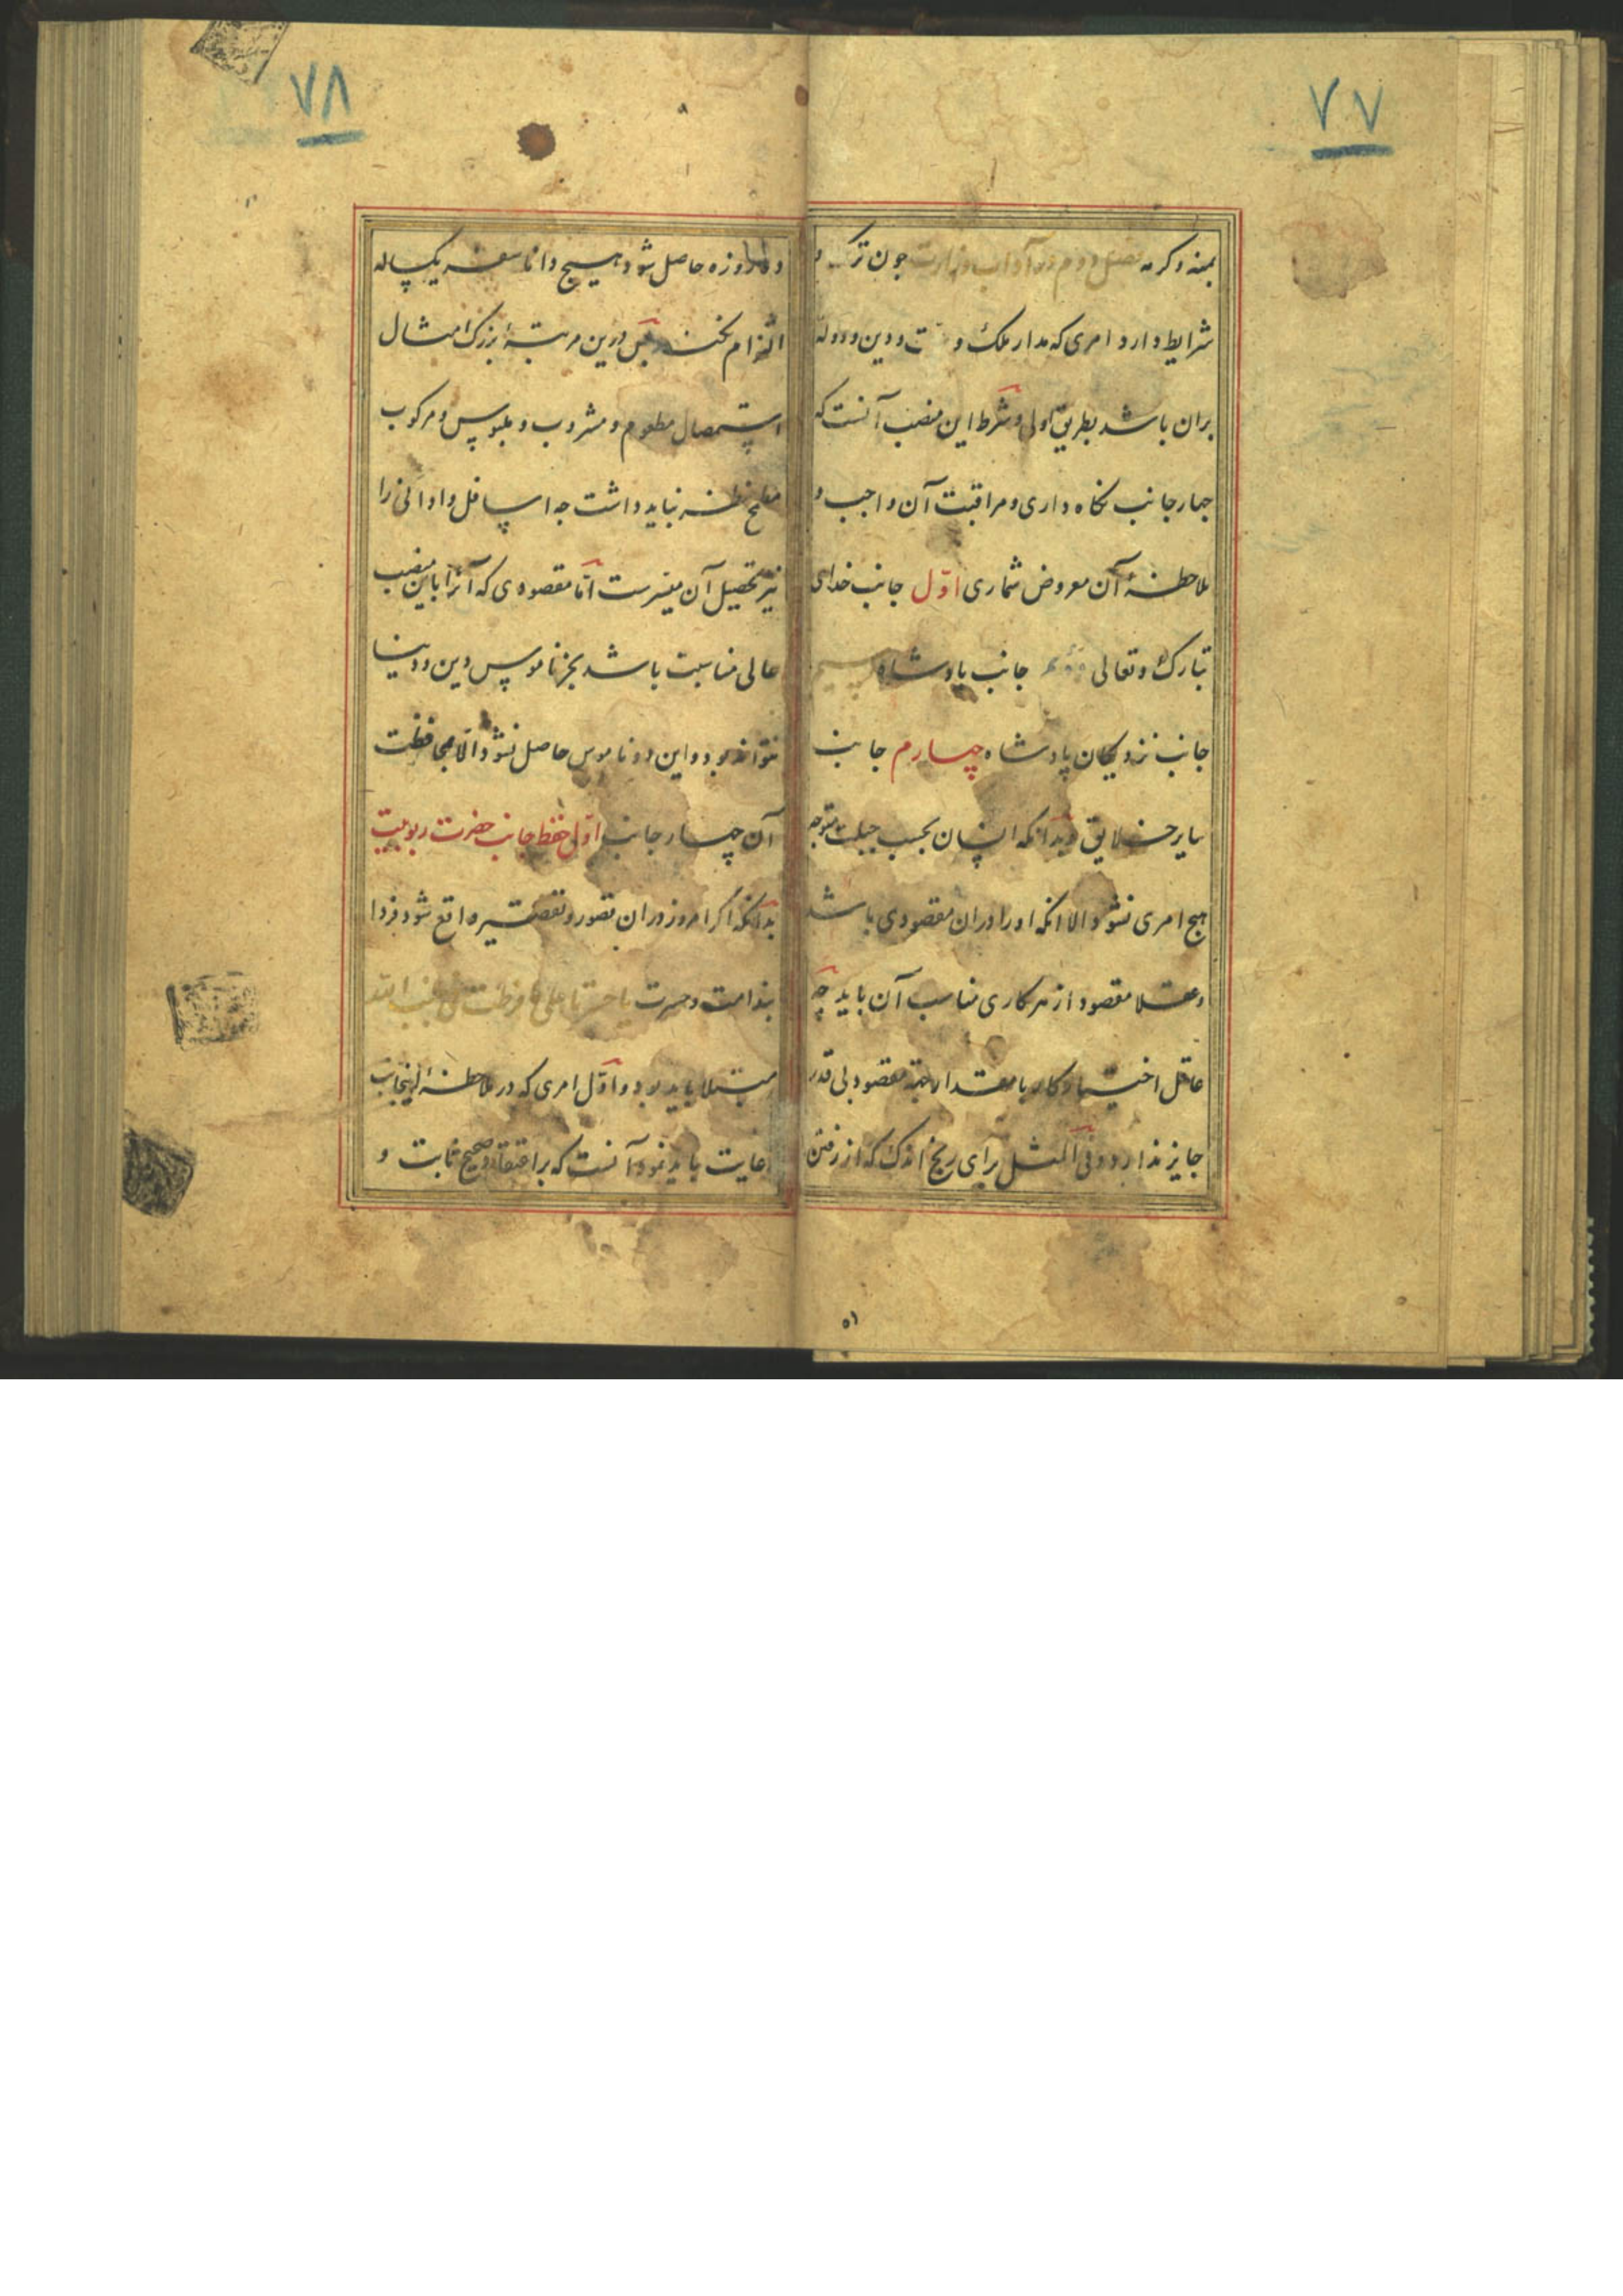 ۷۷
بمنه و کرمه فصل دوم در آداب وزارت چون ترک
شرایط دارد امری که مدار ملک و ت و دین و دولة
بران باشد بطریق اولی و شرط این منصب آنست که
چهار جانب نکاه داری و مراقبت آن واجب و
ملاحظهٔ آن معروض شماری اوّل جانب خدای
تبارک و تعالی دوم جانب پادشاه سیم
جانب نزدیکان پادشاه چهارم جانب
سایر خلایق و بدانکه انسان بحسب جبلت متوجه
هیچ امری نشود الا انکه او را دران مقصودی باشد
و عقلا مقصود از هر کاری مناسب آن باید چه
عاقل اختیار کار با مقدار بجهة مقصود بی قدر
جایز ندارد و فی المثل برای ربح اندک که از رفتن
۵۱
۷۸
روزه حاصل شود هیچ دانا سفر یکساله
التزام نکند پس درین مرتبهٔ بزرک امثال
استحصال مطعوم و مشروب و ملبوس و مرکوب
مطمح نظر نباید داشت چه اسافل و ادانی را
نیز تحصیل آن میسرست امّا مقصودی که آنرا باین منصب
عالی مناسبت باشد بجز ناموس دین و دنیا
نتواند بود و این دو ناموس حاصل نشود الّا بمحافظت
آن چهار جانب اوّل حفظ جانب حضرت ربوبیت
بدانکه اگر امروز دران قصور و تقصیر واقع شود فردا
بندامت و حسرت یا حسرتا علی ما فرطت فی جنب الله
مبتلا باید بود و اوّل امری که در ملاحظهٔ اینجانب
رعایت باید نمود آنست که بر اعتقاد صحیح ثابت و